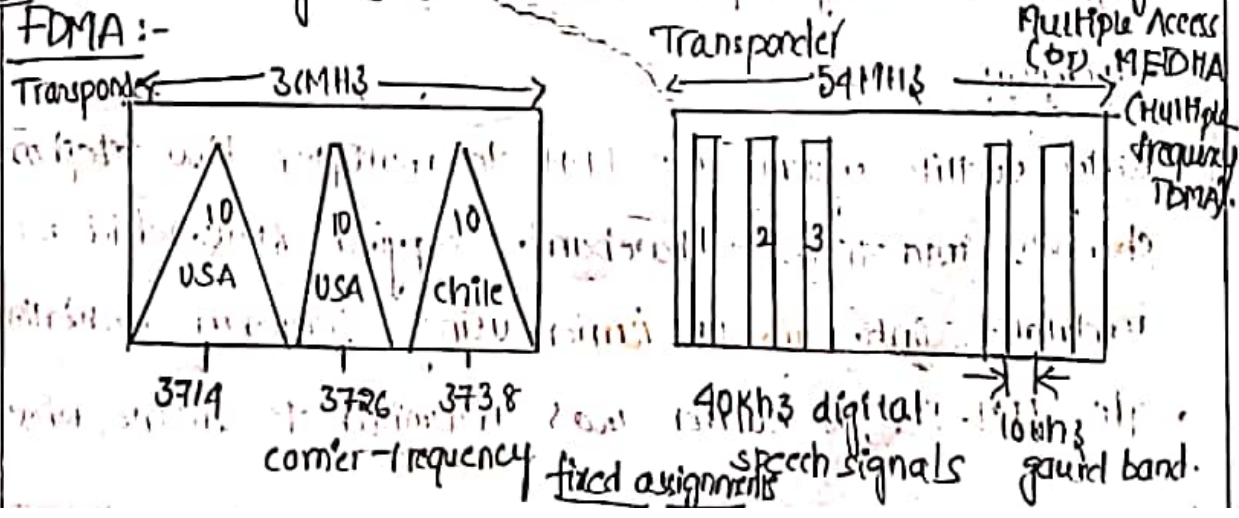 FDMA :-
Transponder
36MHz
10
USA
10
USA
10
chile
3714
3726
3738
carrier-frequency
fixed assignments
Transponder
54MHz
1
2
3
40Khz digital
speech signals
10khz
gaurd band.
Multiple Access
(or) MFDMA
(Multiple
frequency
TDMA).